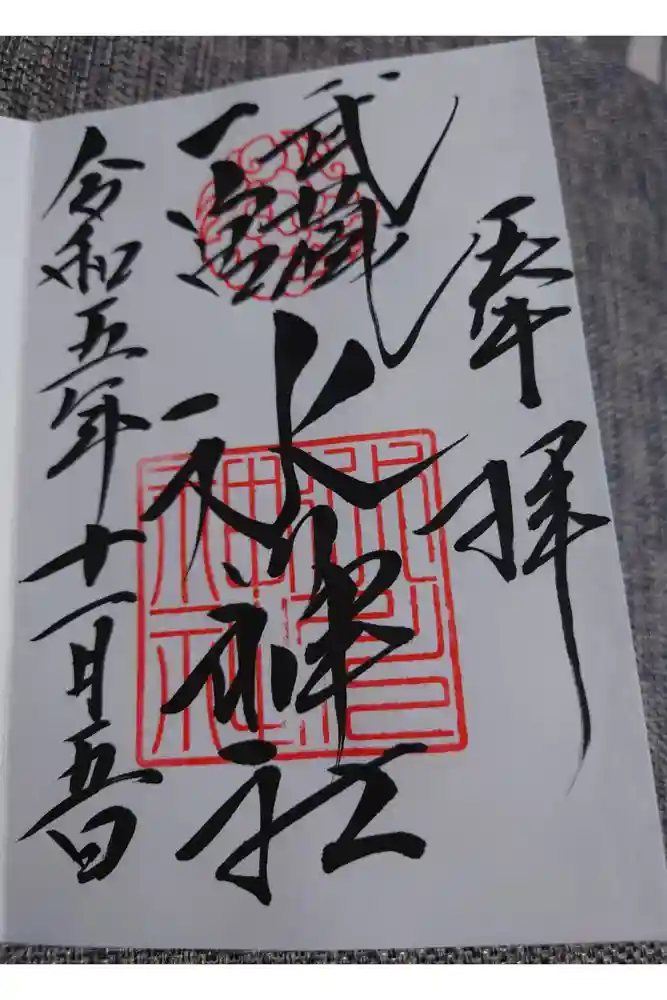 奉拝
武蔵
一宮
氷川神社
氷川
神社
令和五年十一月五日